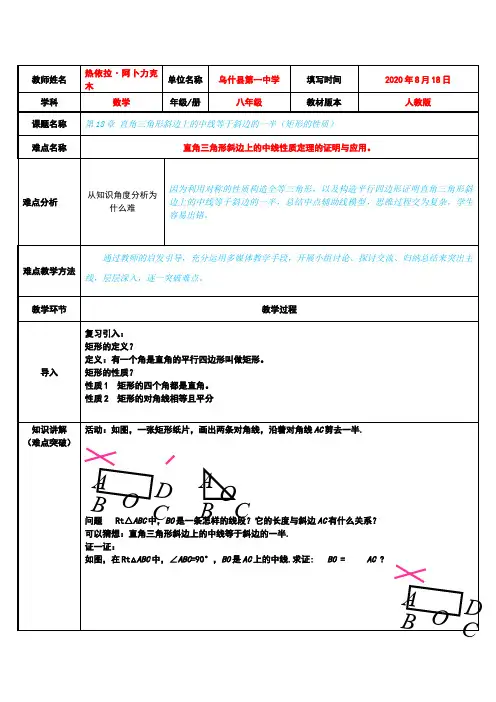 教师姓名 热依拉·阿卜力克木 单位名称 乌什县第一中学 填写时间 2020年8月18日
学科 数学 年级/册 八年级 教材版本 人教版
课题名称 第18章 直角三角形斜边上的中线等于斜边的一半（矩形的性质）
难点名称 直角三角形斜边上的中线性质定理的证明与应用。
难点分析 从知识角度分析为什么难
因为利用对称的性质构造全等三角形，以及构造平行四边形证明直角三角形斜
边上的中线等于斜边的一半，总结中点辅助线模型，思维过程交为复杂，学生
容易出错。
难点教学方法
通过教师的启发引导，充分运用多媒体教学手段，开展小组讨论、探讨交流、归纳总结来突出主
线，层层深入，逐一突破难点。
教学环节 教学过程
导入
复习引入：
矩形的定义？
定义：有一个角是直角的平行四边形叫做矩形。
矩形的性质？
性质1 矩形的四个角都是直角。
性质2 矩形的对角线相等且平分
知识讲解
（难点突破）
活动：如图，一张矩形纸片，画出两条对角线，沿着对角线AC剪去一半.
A D
B O C
A O
B C
问题 Rt△ABC中，BO是一条怎样的线段？它的长度与斜边AC有什么关系？
可以猜想：直角三角形斜边上的中线等于斜边的一半.
证一证：
如图，在Rt△ABC中，∠ABC=90°，BO是AC上的中线.求证： BO = AC ？
A D
B O C